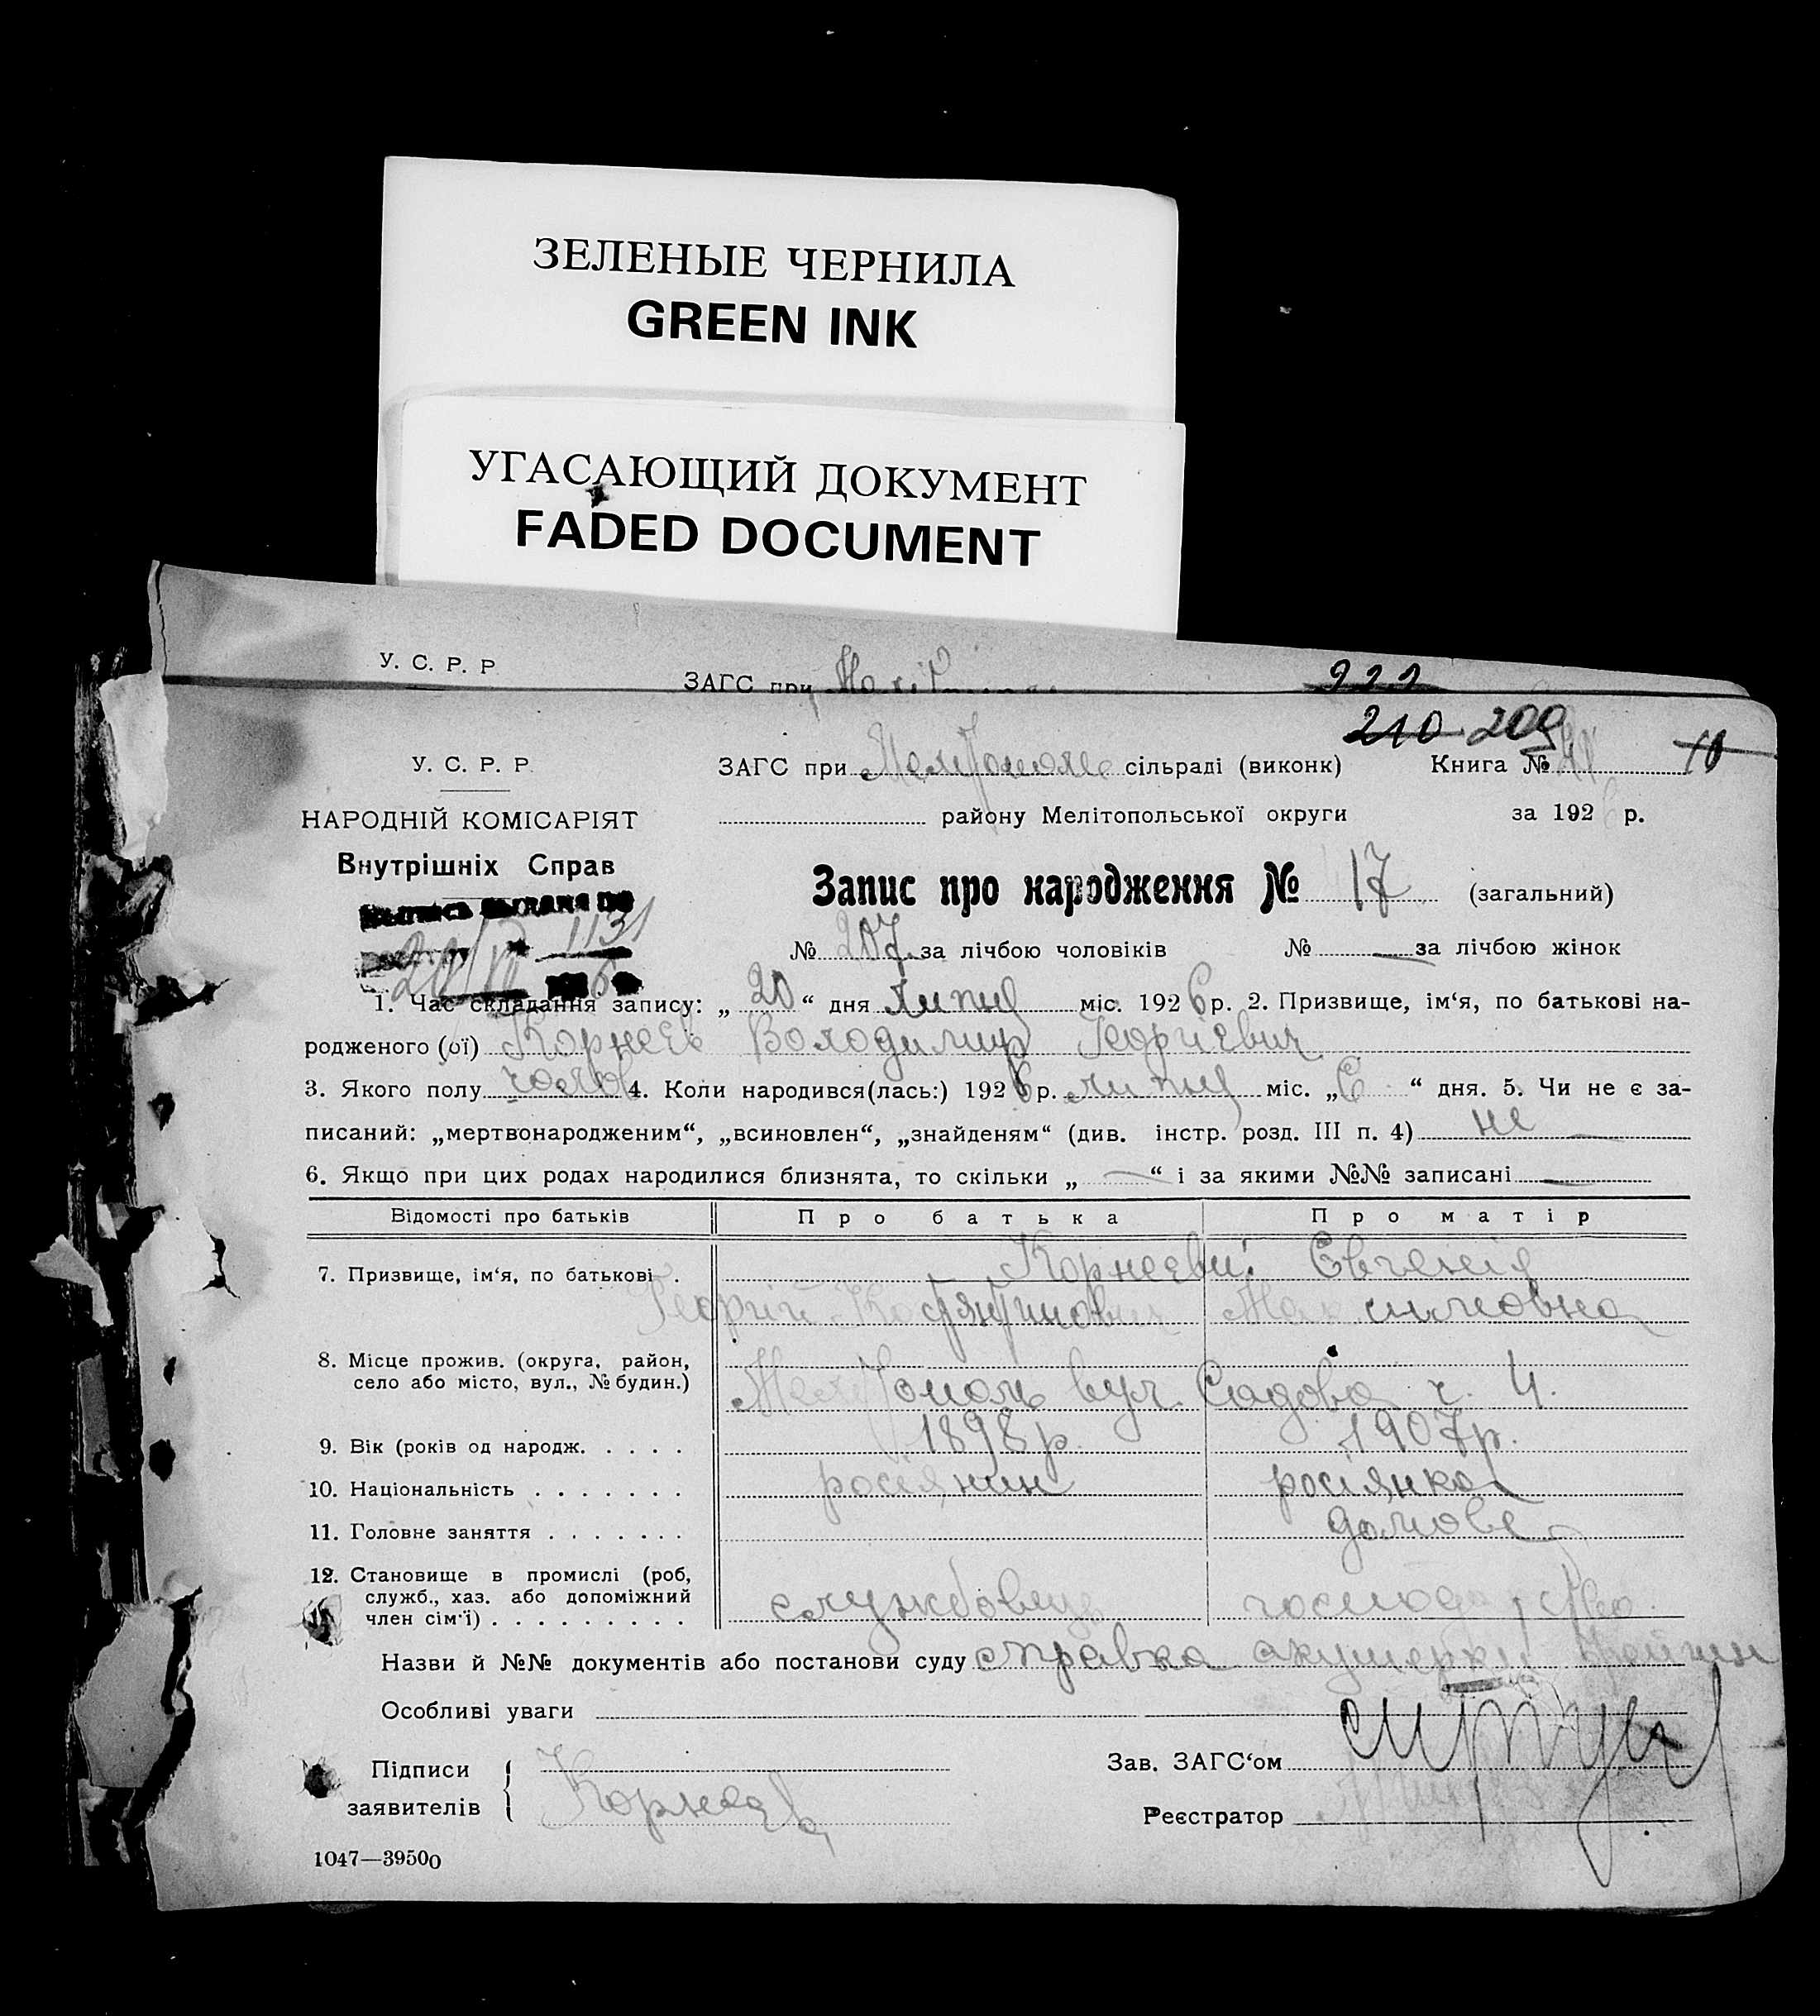 ЗЕЛЕНЫЕ ЧЕРНИЛА
GREEN INK
УГАСАЮЩИЙ ДОКУМЕНТ
FADED DOCUMENT
У. С. Р. Р
ЗАГС при
221
210 209
У. С. Р. Р.
ЗАГС при сільраді (виконк) Книга № 10
НАРОДНІЙ КОМІСАРІЯТ
району Мелітопольської округи за 1926 р.
Внутрішніх Справ
Запис про народження № 17 (загальний)
1131
№ 207 за лічбою чоловіків № — за лічбою жінок
1. Час складання запису: „20“ дня липня міс. 1926 р. 2. Призвище, ім‘я, по батькові на-
родженого (ої) Корнеєв Володимир Георгієвич
3. Якого полу чолов 4. Коли народився(лась:) 1926 р. липня міс. „6“ дня. 5. Чи не є за-
писаний: „мертвонародженим“, „всиновлен“, „знайденям“ (див. інстр. розд. III п. 4) не —
6. Якщо при цих родах народилися близнята, то скільки „—“ і за якими №№ записані —
Відомості про батьків Про батька Про матір
7. Призвище, ім‘я, по батькові . Корнеєви: Євгенія
Георгій Костянтинович Максимовна
8. Місце прожив. (округа, район,
село або місто, вул., № будин.) Мелітополь вул. Садова ч. 4.
9. Вік (років од народж. . . . . 1898 р. 1907 р.
10. Національність . . . . . . . росіянин росіянка
11. Головне заняття . . . . . . . домове
12. Становище в промислі (роб,
служб., хаз. або допоміжний
член сім‘ї) . . . . . . . . . службовець господарство
Назви й №№ документів або постанови суду справка акушерки
Особливі уваги
Підписи
заявителів Корнеев
Зав. ЗАГС‘ом
Реєстратор
1047—39500